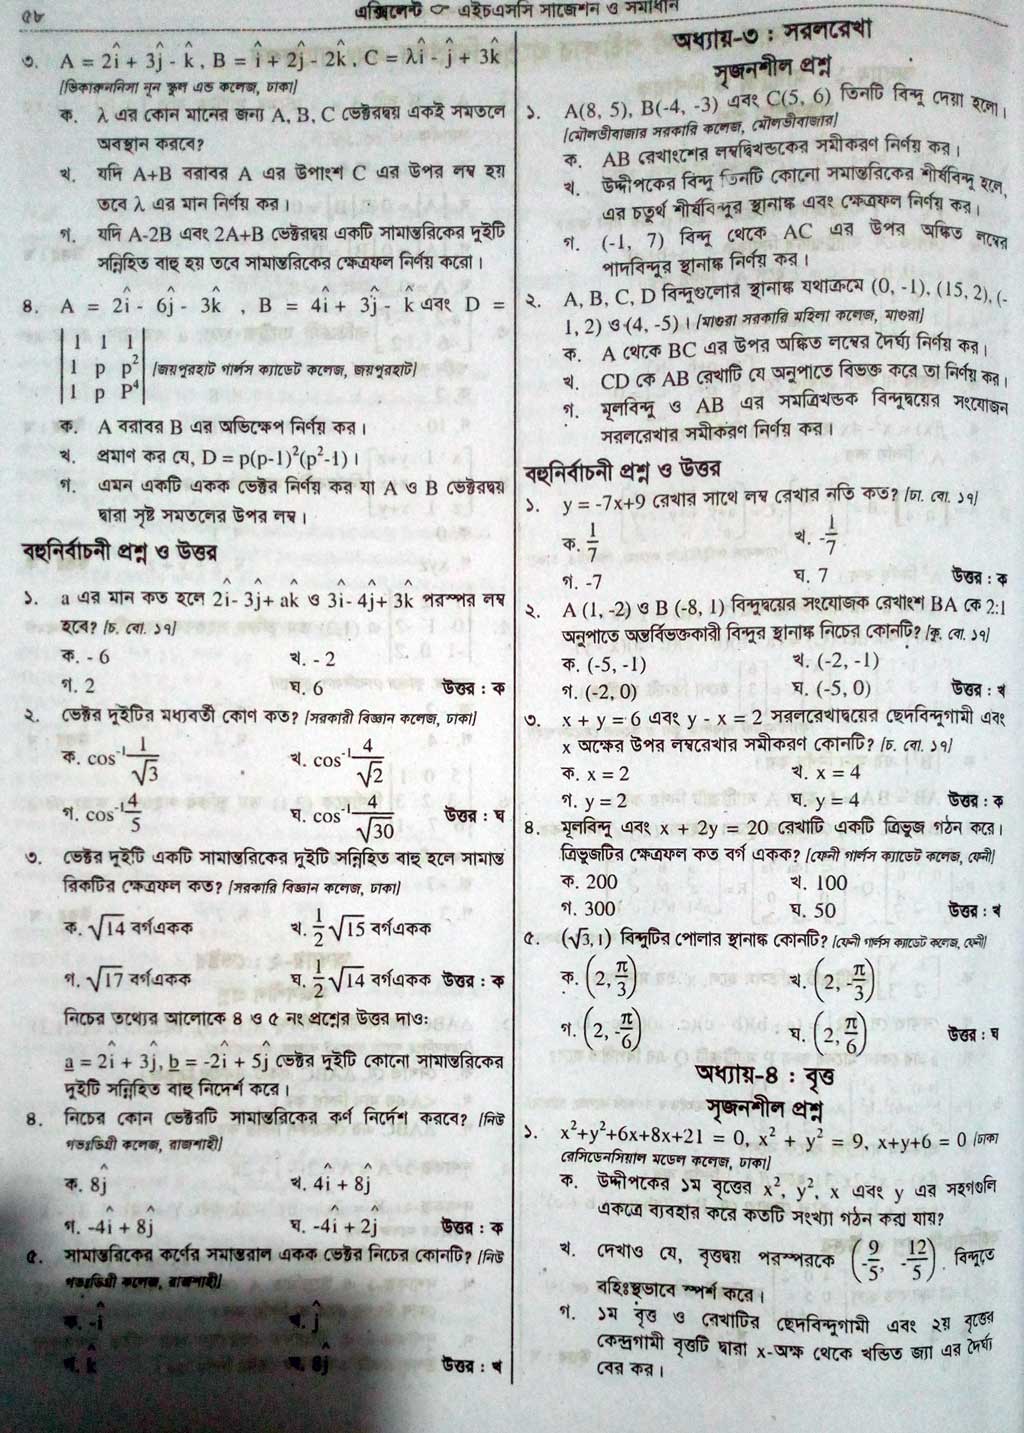 ৫৮
এক্সিলেন্ট ☞ এইচএসসি সাজেশন ও সমাধান
৩. A = 2î + 3ĵ - k̂, B = î + 2ĵ - 2k̂, C = λî - ĵ + 3k̂
[ভিকারুননিসা নূন স্কুল এন্ড কলেজ, ঢাকা]
ক. λ এর কোন মানের জন্য A, B, C ভেক্টরদ্বয় একই সমতলে
অবস্থান করবে?
খ. যদি A+B বরাবর A এর উপাংশ C এর উপর লম্ব হয়
তবে λ এর মান নির্ণয় কর।
গ. যদি A-2B এবং 2A+B ভেক্টরদ্বয় একটি সামান্তরিকের দুইটি
সন্নিহিত বাহু হয় তবে সামান্তরিকের ক্ষেত্রফল নির্ণয় করো।
৪. A = 2î - 6ĵ - 3k̂ , B = 4î + 3ĵ - k̂ এবং D =
|1 1 1|
|1 p p²| [জয়পুরহাট গার্লস ক্যাডেট কলেজ, জয়পুরহাট]
|1 p P⁴|
ক. A বরাবর B এর অভিক্ষেপ নির্ণয় কর।
খ. প্রমাণ কর যে, D = p(p-1)²(p²-1)।
গ. এমন একটি একক ভেক্টর নির্ণয় কর যা A ও B ভেক্টরদ্বয়
দ্বারা সৃষ্ট সমতলের উপর লম্ব।
বহুনির্বাচনী প্রশ্ন ও উত্তর
১. a এর মান কত হলে 2î - 3ĵ + ak̂ ও 3î - 4ĵ + 3k̂ পরস্পর লম্ব
হবে? [চ. বো. ১৭]
ক. - 6 খ. - 2
গ. 2 ঘ. 6 উত্তর : ক
২. ভেক্টর দুইটির মধ্যবর্তী কোণ কত? [সরকারী বিজ্ঞান কলেজ, ঢাকা]
ক. cos⁻¹ 1/√3 খ. cos⁻¹ 4/√2
গ. cos⁻¹ 4/5 ঘ. cos⁻¹ 4/√30 উত্তর : ঘ
৩. ভেক্টর দুইটি একটি সামান্তরিকের দুইটি সন্নিহিত বাহু হলে সামান্ত
রিকটির ক্ষেত্রফল কত? [সরকারি বিজ্ঞান কলেজ, ঢাকা]
ক. √14 বর্গএকক খ. 1/2 √15 বর্গএকক
গ. √17 বর্গএকক ঘ. 1/2 √14 বর্গএকক উত্তর : ক
নিচের তথ্যের আলোকে ৪ ও ৫ নং প্রশ্নের উত্তর দাও:
a = 2î + 3ĵ, b = -2î + 5ĵ ভেক্টর দুইটি কোনো সামান্তরিকের
দুইটি সন্নিহিত বাহু নির্দেশ করে।
৪. নিচের কোন ভেক্টরটি সামান্তরিকের কর্ণ নির্দেশ করবে? [নিউ
গভঃডিগ্রী কলেজ, রাজশাহী]
ক. 8ĵ খ. 4î + 8ĵ
গ. -4î + 8ĵ ঘ. -4î + 2ĵ উত্তর : ক
৫. সামান্তরিকের কর্ণের সমান্তরাল একক ভেক্টর নিচের কোনটি? [নিউ
গভঃডিগ্রী কলেজ, রাজশাহী]
ক. -î খ. ĵ
গ. k̂ ঘ. 8ĵ উত্তর : খ
অধ্যায়-৩ : সরলরেখা
সৃজনশীল প্রশ্ন
১. A(8, 5), B(-4, -3) এবং C(5, 6) তিনটি বিন্দু দেয়া হলো।
[মৌলভীবাজার সরকারি কলেজ, মৌলভীবাজার]
ক. AB রেখাংশের লম্বদ্বিখন্ডকের সমীকরণ নির্ণয় কর।
খ. উদ্দীপকের বিন্দু তিনটি কোনো সমান্তরিকের শীর্ষবিন্দু হলে,
এর চতুর্থ শীর্ষবিন্দুর স্থানাঙ্ক এবং ক্ষেত্রফল নির্ণয় কর।
গ. (-1, 7) বিন্দু থেকে AC এর উপর অঙ্কিত লম্বের
পাদবিন্দুর স্থানাঙ্ক নির্ণয় কর।
২. A, B, C, D বিন্দুগুলোর স্থানাঙ্ক যথাক্রমে (0, -1), (15, 2), (-
1, 2) ও (4, -5)। [মাগুরা সরকারি মহিলা কলেজ, মাগুরা]
ক. A থেকে BC এর উপর অঙ্কিত লম্বের দৈর্ঘ্য নির্ণয় কর।
খ. CD কে AB রেখাটি যে অনুপাতে বিভক্ত করে তা নির্ণয় কর।
গ. মূলবিন্দু ও AB এর সমত্রিখন্ডক বিন্দুদ্বয়ের সংযোজন
সরলরেখার সমীকরণ নির্ণয় কর।
বহুনির্বাচনী প্রশ্ন ও উত্তর
১. y = -7x+9 রেখার সাথে লম্ব রেখার নতি কত? [ঢা. বো. ১৭]
ক. 1/7 খ. -1/7
গ. -7 ঘ. 7 উত্তর : ক
২. A (1, -2) ও B (-8, 1) বিন্দুদ্বয়ের সংযোজক রেখাংশ BA কে 2:1
অনুপাতে অন্তর্বিভক্তকারী বিন্দুর স্থানাঙ্ক নিচের কোনটি? [কু. বো. ১৭]
ক. (-5, -1) খ. (-2, -1)
গ. (-2, 0) ঘ. (-5, 0) উত্তর : খ
৩. x + y = 6 এবং y - x = 2 সরলরেখাদ্বয়ের ছেদবিন্দুগামী এবং
x অক্ষের উপর লম্বরেখার সমীকরণ কোনটি? [চ. বো. ১৭]
ক. x = 2 খ. x = 4
গ. y = 2 ঘ. y = 4 উত্তর : ক
৪. মূলবিন্দু এবং x + 2y = 20 রেখাটি একটি ত্রিভুজ গঠন করে।
ত্রিভুজটির ক্ষেত্রফল কত বর্গ একক? [ফেনী গার্লস ক্যাডেট কলেজ, ফেনী]
ক. 200 খ. 100
গ. 300 ঘ. 50 উত্তর : খ
৫. (√3, 1) বিন্দুটির পোলার স্থানাঙ্ক কোনটি? [ফেনী গার্লস ক্যাডেট কলেজ, ফেনী]
ক. (2, π/3) খ. (2, -π/3)
গ. (2, -π/6) ঘ. (2, π/6) উত্তর : ঘ
অধ্যায়-৪ : বৃত্ত
সৃজনশীল প্রশ্ন
১. x²+y²+6x+8x+21 = 0, x² + y² = 9, x+y+6 = 0 [ঢাকা
রেসিডেনসিয়াল মডেল কলেজ, ঢাকা]
ক. উদ্দীপকের ১ম বৃত্তের x², y², x এবং y এর সহগগুলি
একত্রে ব্যবহার করে কতটি সংখ্যা গঠন করা যায়?
খ. দেখাও যে, বৃত্তদ্বয় পরস্পরকে (-9/5, -12/5) বিন্দুতে
বহিঃস্থভাবে স্পর্শ করে।
গ. ১ম বৃত্ত ও রেখাটির ছেদবিন্দুগামী এবং ২য় বৃত্তের
কেন্দ্রগামী বৃত্তটি দ্বারা x-অক্ষ থেকে খন্ডিত জ্যা এর দৈর্ঘ্য
বের কর।